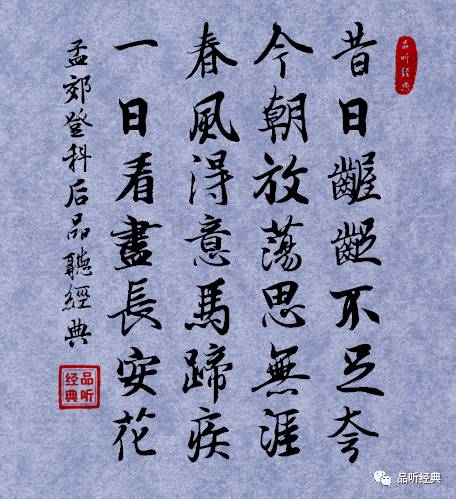 品听经典
昔日齷齪不足夸
今朝放蕩思無涯
春風得意馬蹄疾
一日看盡長安花
孟郊登科后品聽經典
品听
经典
品听经典